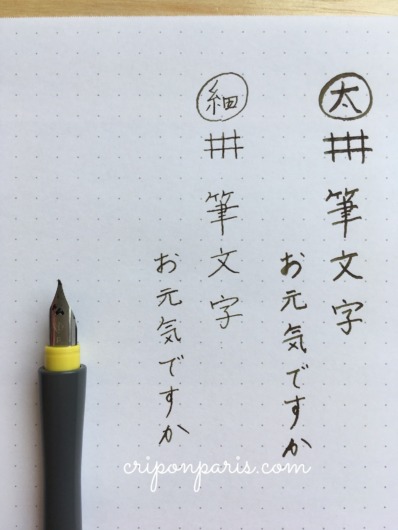 太
筆文字
お元気ですか
細
筆文字
お元気ですか
criponparis.com